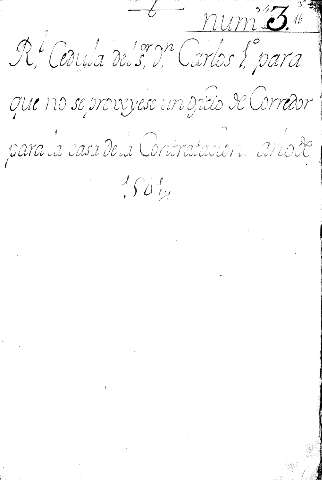 6
num.º 3.º
R.l Cedula del s.or D.n Carlos I.º para
que no se proveyese un oficio de Corredor
para la casa de la Contratacion. año de